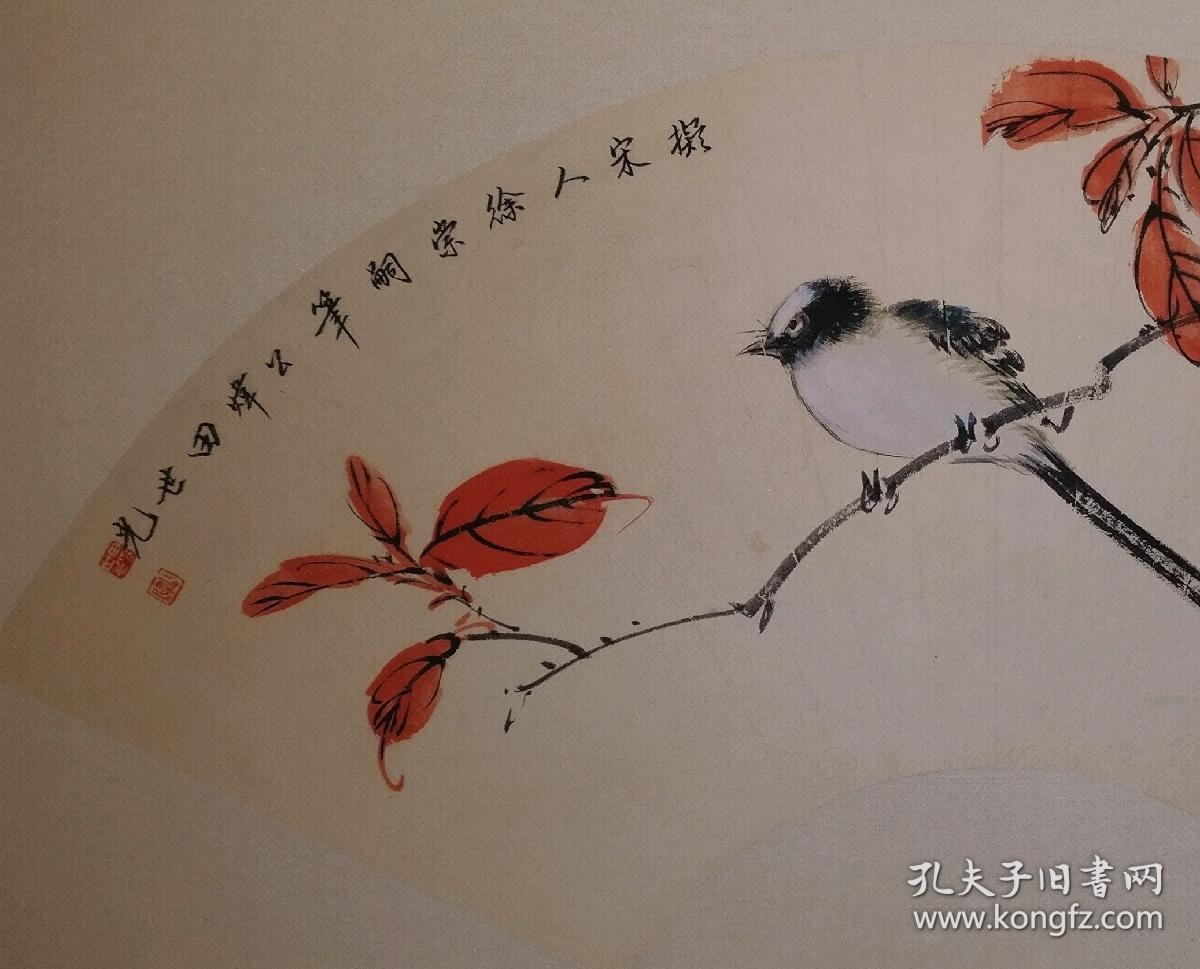 擬宋人徐崇嗣筆公煒田世光
孔夫子旧書网
www.kongfz.com